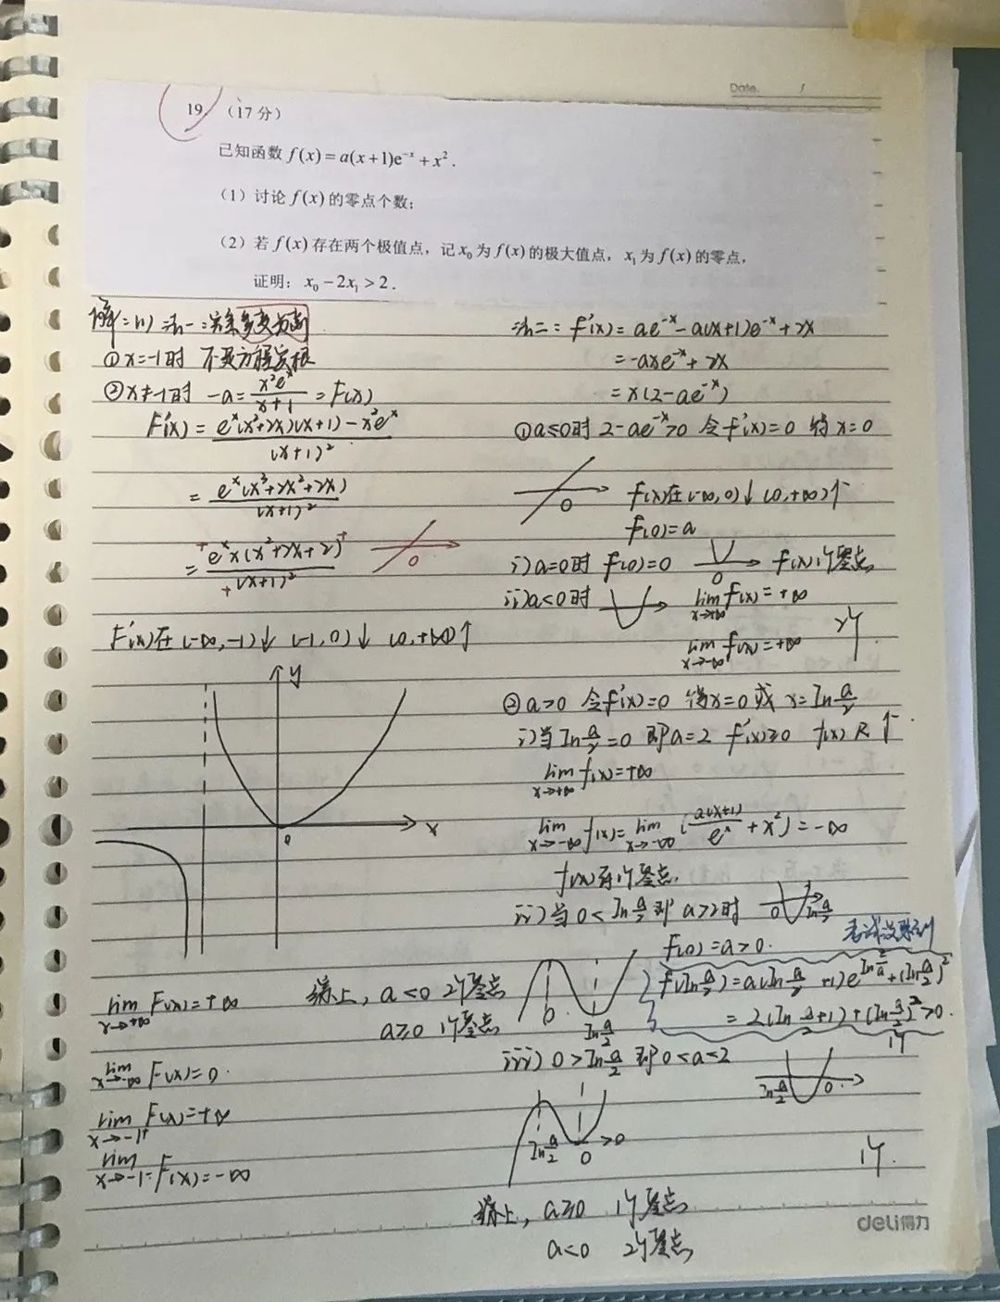 Date. /
19. (17分)
已知函数 f(x)=a(x+1)e^{-x}+x².
(1) 讨论 f(x) 的零点个数;
(2) 若 f(x) 存在两个极值点, 记 x₀ 为 f(x) 的极大值点, x₁ 为 f(x) 的零点,
证明: x₀-2x₁>2.
解:(1) 法一:
①x=-1时 不是方程实根
②x≠-1时 -a=x²e^x/(x+1)=F(x)
F'(x)=[e^x(x²+2x)(x+1)-x²e^x]/(x+1)²
=e^x(x³+2x²+2x)/(x+1)²
=e^x x(x²+2x+2)/(x+1)²
+ + +
0
F(x)在(-∞,-1)↓ (-1,0)↓ (0,+∞)↑
y
x
0
lim_{x→+∞} F(x)=+∞
综上, a<0 2个零点
a≥0 1个零点
lim_{x→-∞} F(x)=0
lim_{x→-1⁺} F(x)=+∞
lim_{x→-1⁻} F(x)=-∞
法二: f'(x)=ae^{-x}-a(x+1)e^{-x}+2x
=-axe^{-x}+2x
=x(2-ae^{-x})
①a≤0时 2-ae^{-x}>0 令f'(x)=0 得x=0
0
f(x)在(-∞,0)↓ (0,+∞)↑
f(0)=a
i)a=0时 f(0)=0 0 f(x)1个零点
ii)a<0时 lim_{x→+∞} f(x)=+∞
lim_{x→-∞} f(x)=+∞
2个
②a>0 令f'(x)=0 得x=0或x=ln a/2
i)当ln a/2=0 即a=2 f'(x)≥0 f(x) R↑
lim_{x→+∞} f(x)=+∞
lim_{x→-∞} f(x)=lim_{x→-∞}(a(x+1)/e^x+x²)=-∞
f(x)有1个零点.
ii)当0<ln a/2 即a>2时 0 ln a/2
f(0)=a>0.
f(ln a/2)=a(ln a/2+1)e^{ln 2/a}+(ln a/2)²
=2(ln a/2+1)+(ln a/2)²>0.
0 ln a/2
1个
iii)0>ln a/2 即0<a<2
ln a/2 0
ln a/2 0 >0
1个
综上, a≥0 1个零点
a<0 2个零点
deli得力